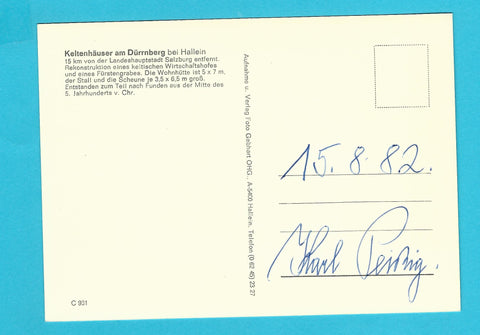 Keltenhäuser am Dürrnberg bei Hallein
15 km von der Landeshauptstadt Salzburg entfernt.
Rekonstruktion eines keltischen Wirtschaftshofes
und eines Fürstengrabes. Die Wohnhütte ist 5 x 7 m,
der Stall und die Scheune je 3,5 x 6,5 m groß.
Entstanden zum Teil nach Funden aus der Mitte des
5. Jahrhunderts v. Chr.
C 901
Aufnahme u. Verlag Foto Gebhart OHG., A-5400 Hallein. Telefon (0 62 45) 23 27
15. 8. 82.
Karl